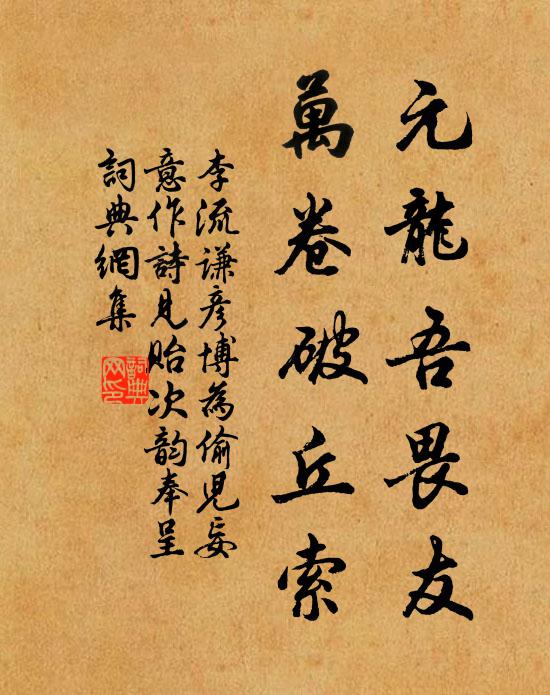 元龍吾畏友
萬卷破丘索
李流謙彦博為偷兒妄
意作詩見貽次韵奉呈
詞典網集
詞典
网印